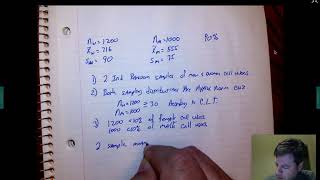 nw = 1200 nm = 1000 90%
x̄w = 716 x̄m = 555
sw = 90 sm = 75
1) 2 Ind Random samples of men & women cell users
2) Both sampling distributions are Approx Norm
nw = 1200 ≥ 30 According to C.L.T.
nm = 1000
3) 1200 <10% of female cell users
1000 <10% of male cell users
2 sample